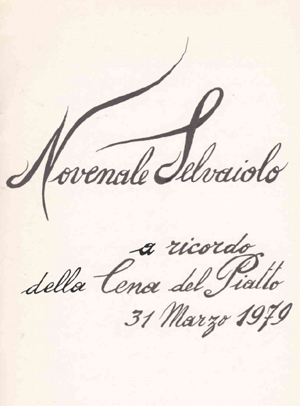 Novenale Selvaiolo
a ricordo
della Cena del Piatto
31 Marzo 1979